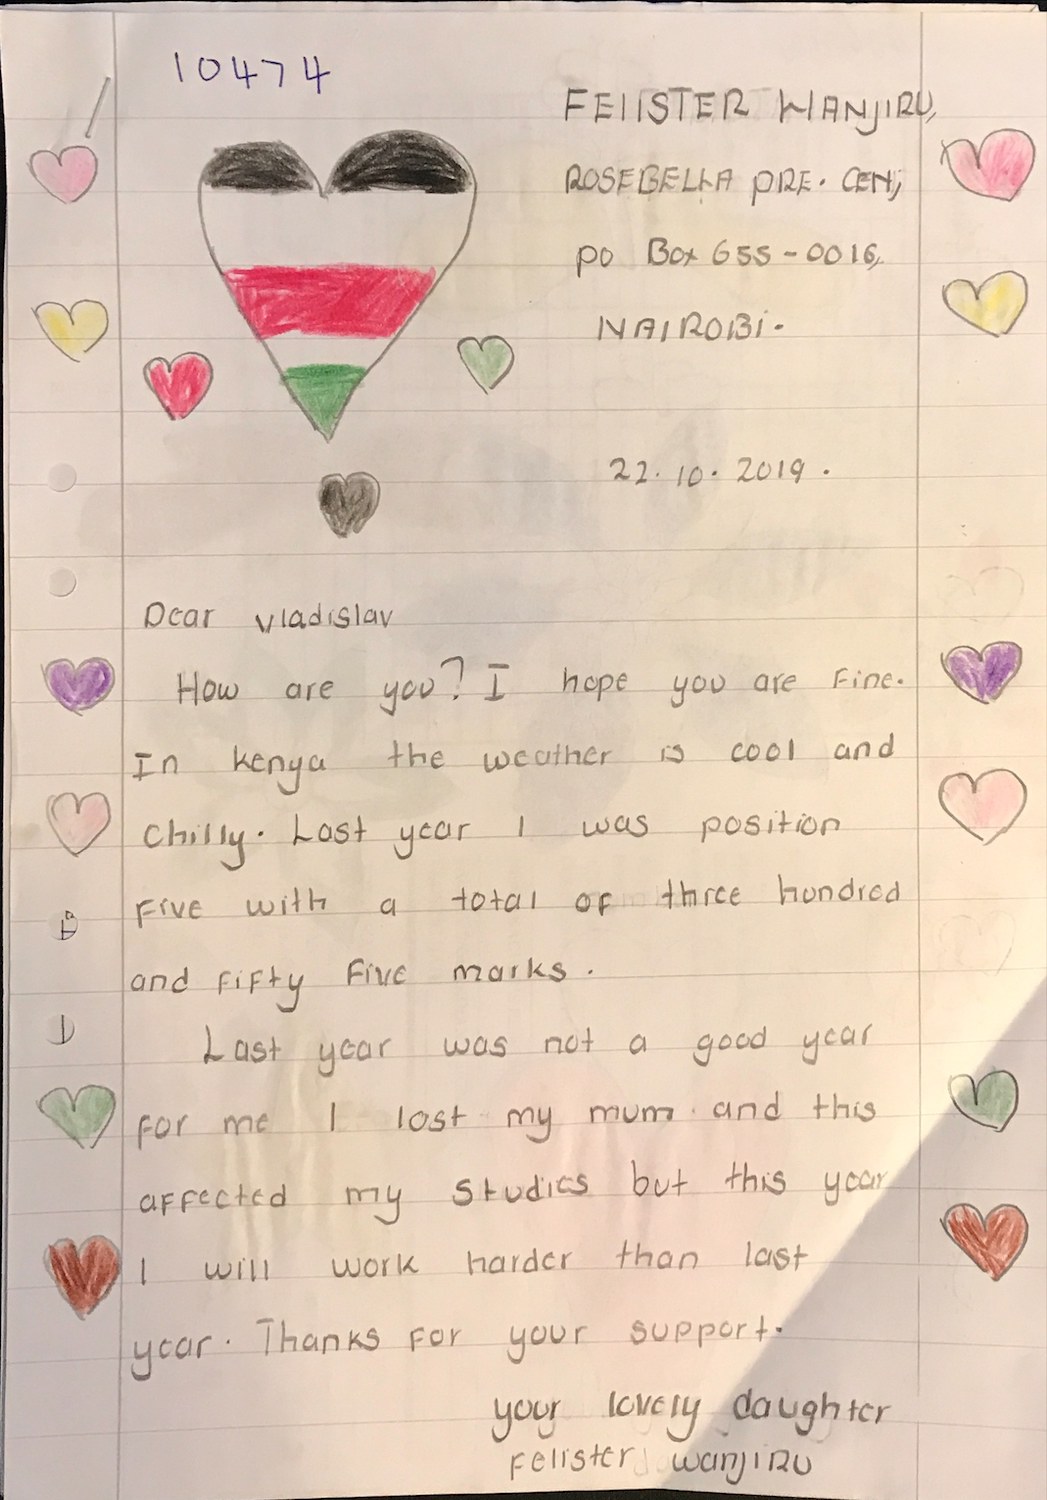 10474
FELISTER WANJIRU,
ROSEBELLA PRE. CEN,
PO Box 655-0016,
NAIROBI.
22.10.2019.
Dear vladislav
How are you? I hope you are Fine.
In kenya the weather is cool and
chilly. Last year I was position
Five with a total of three hundred
and fifty Five marks.
Last year was not a good year
For me I lost my mum and this
affected my studies but this year
I will work harder than last
year. Thanks For your support.
your lovely daughter
Felister wanjiru